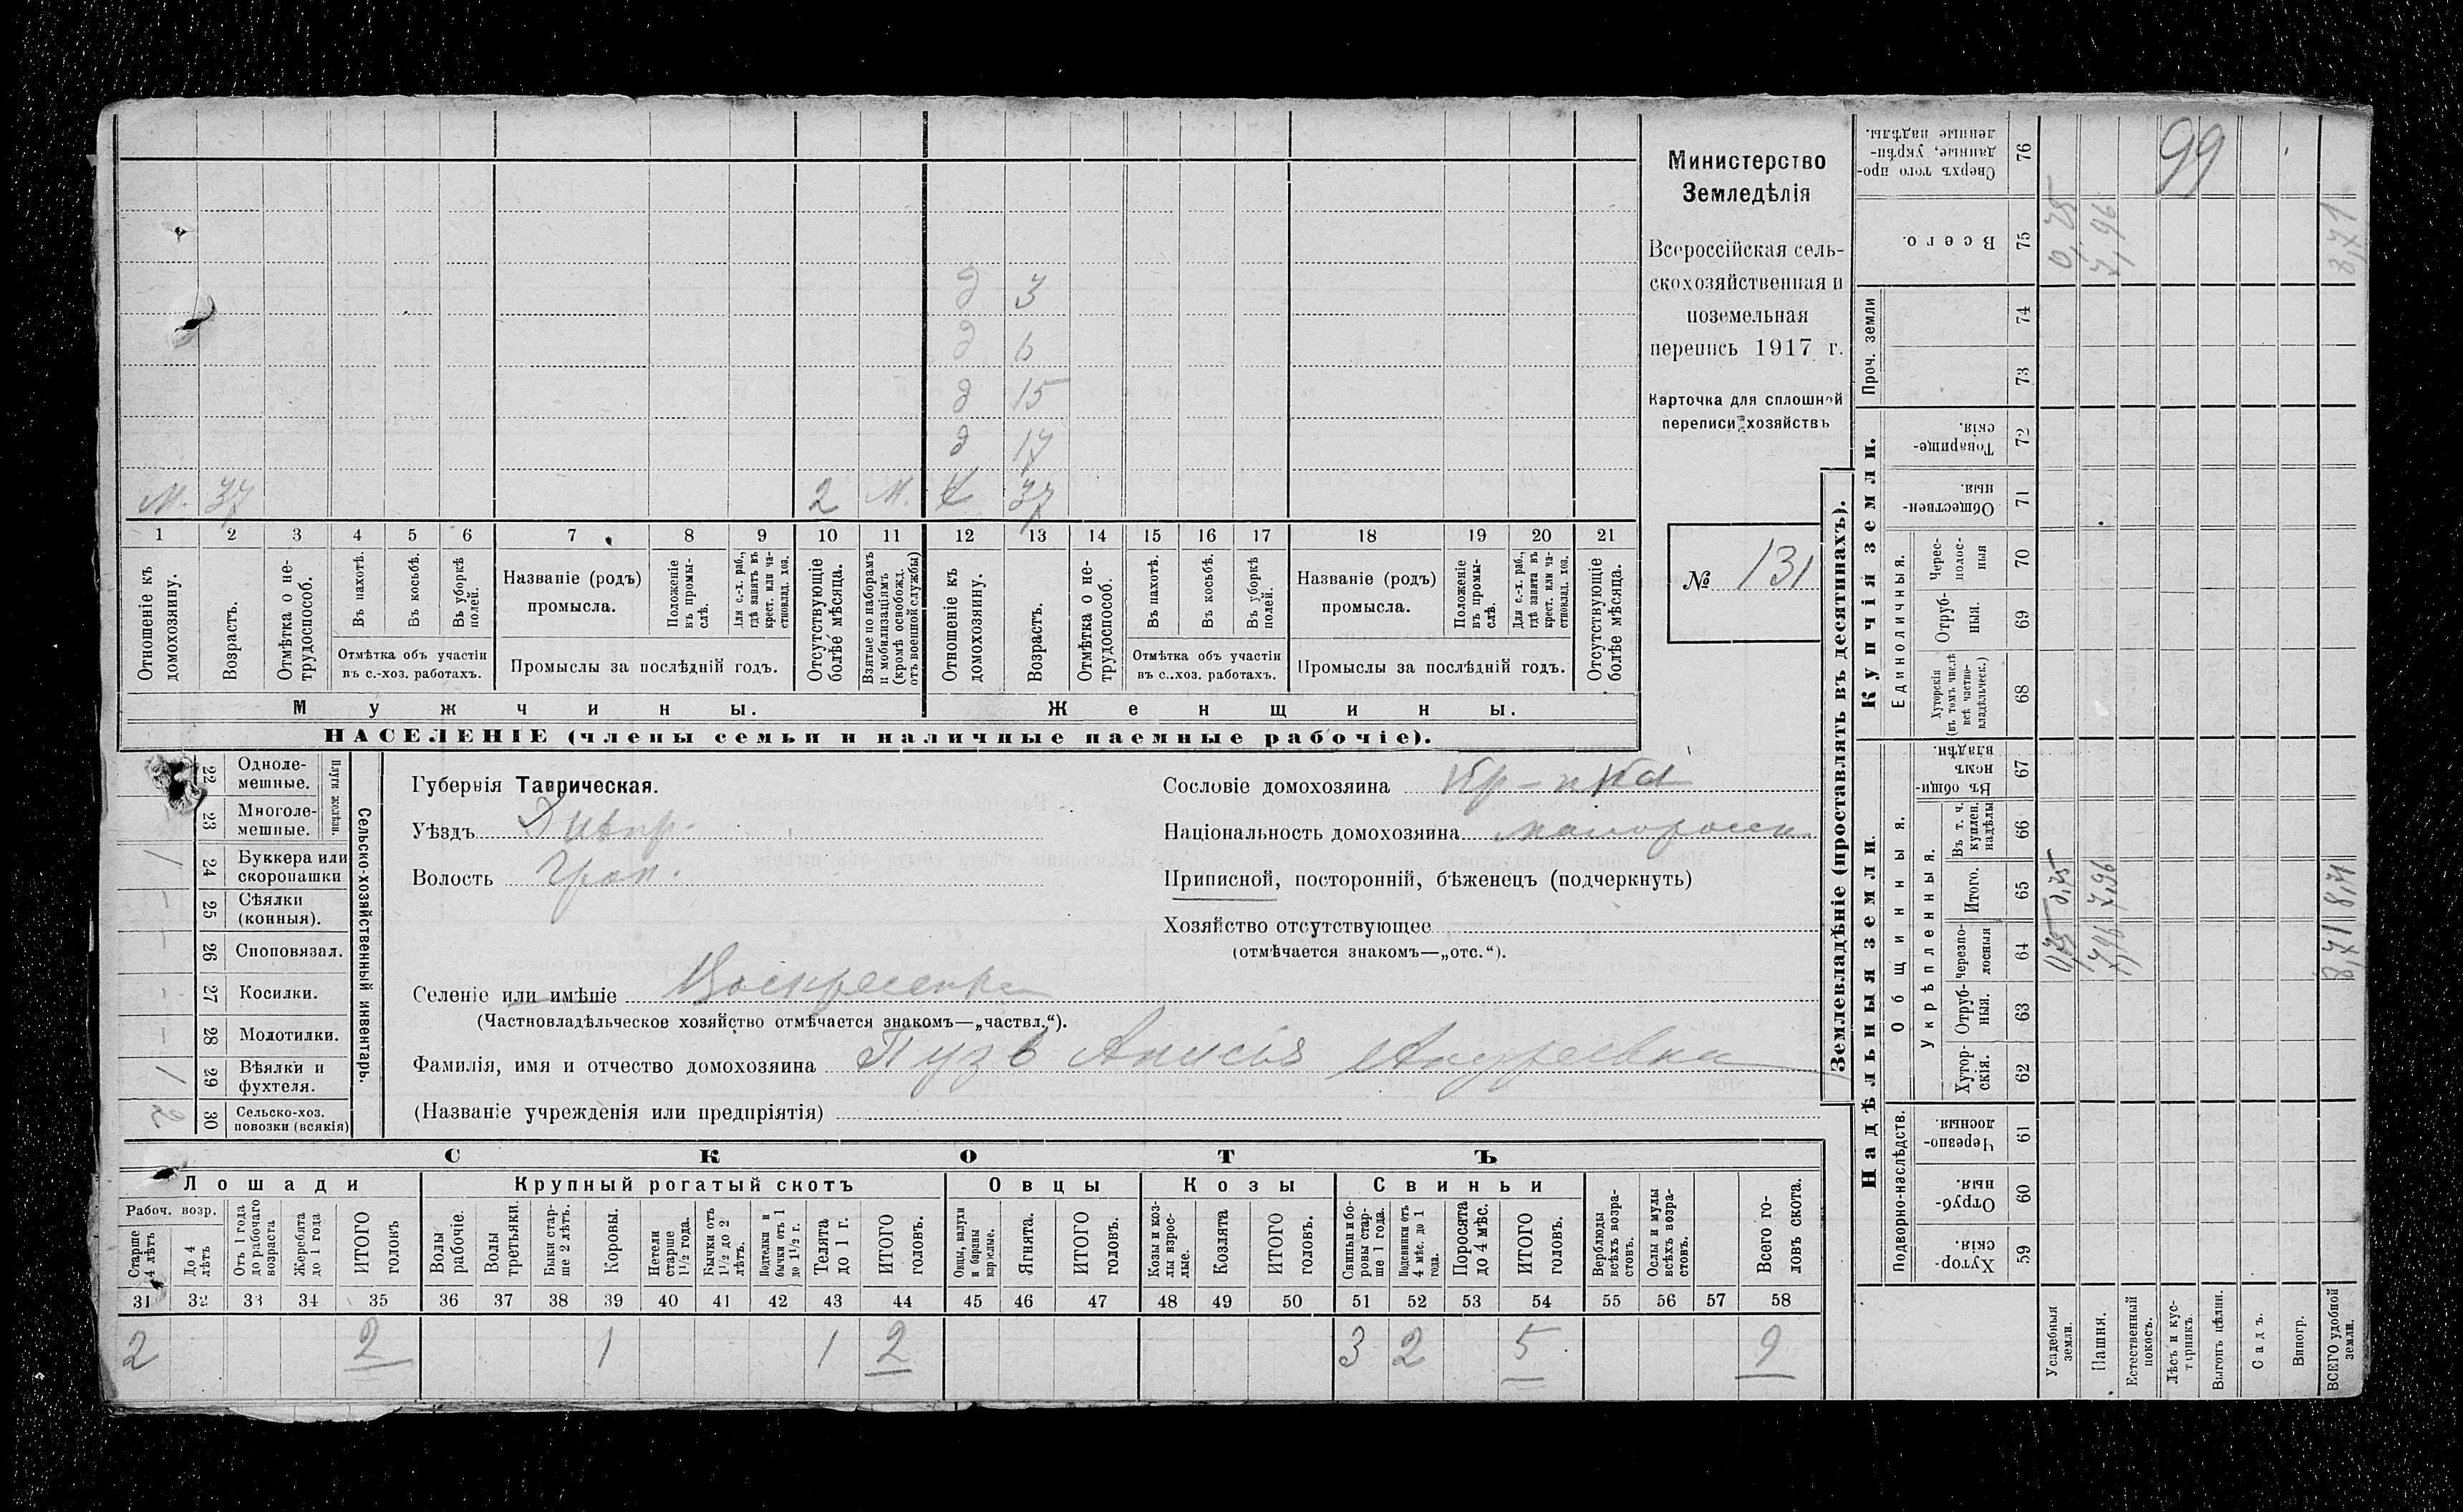 М. 37 2 М. Х 37
д 3
д 6
д 15
д 17
1 2 3 4 5 6 7 8 9 10 11 12 13 14 15 16 17 18 19 20 21
Отношеніе къ домохозяину.
Возрастъ.
Отмѣтка о не-
трудоспособ.
Въ пахотѣ.
Въ косьбѣ.
Въ уборкѣ
полей.
Отмѣтка объ участіи
въ с.-хоз. работахъ.
Названіе (родъ)
промысла.
Положеніе
въ промы-
слѣ.
Для с.-х. раб.,
гдѣ занятъ въ
крест. или ча-
стновлад. хоз.
Промыслы за послѣдній годъ.
Отсутствующіе
болѣе мѣсяца.
Взятые по наборамъ
и мобилизаціямъ
(кромѣ освобожд.
отъ военной службы)
Отношеніе къ
домохозяину.
Возрастъ.
Отмѣтка о не-
трудоспособ.
Въ пахотѣ.
Въ косьбѣ.
Въ уборкѣ
полей.
Отмѣтка объ участіи
въ с..хоз. работахъ.
Названіе (родъ)
промысла.
Положеніе
въ промы-
слѣ.
Для с.-х. раб.,
гдѣ занята въ
крест. или ча-
стновлад. хоз.
Промыслы за послѣдній годъ.
Отсутствующіе
болѣе мѣсяца.
Мужчины.
Женщины.
НАСЕЛЕНІЕ (члены семьи и наличные наемные рабочіе).
Министерство
Земледѣлія
Всероссійская сель-
скохозяйственная и
поземельная
перепись 1917 г.
Карточка для сплошной
переписи хозяйствъ
№ 131
22 Одноле-
мешные.
23 Многоле-
мешные.
Плуги желѣзн.
24 Буккера или
скоропашки /
25 Сѣялки
(конныя). -
26 Сноповязал. -
27 Косилки. -
28 Молотилки. -
29 Вѣялки и
фухтеля. /
30 Сельско-хоз.
повозки (всякія) 2
Сельско-хозяйственный инвентарь.
Губернія Таврическая.
Уѣздъ Днѣпр.
Волость
Селеніе или имѣніе Воскресенка
(Частновладѣльческое хозяйство отмѣчается знакомъ—„частвл.“).
Фамилія, имя и отчество домохозяина Пузъ Анисія Андреевна
(Названіе учрежденія или предпріятія)
Сословіе домохозяина Кр-нка
Національность домохозяина малоросси
Приписной, посторонній, бѣженецъ (подчеркнуть)
Хозяйство отсутствующее
(отмѣчается знакомъ—„отс.“).
СКОТЪ
Лошади
Рабоч. возр.
Старше
4 лѣтъ
До 4
лѣтъ
Отъ 1 года
до рабочаго
возраста
Жеребята
до 1 года
ИТОГО
головъ
Крупный рогатый скотъ
Волы
рабочіе.
Волы
третьяки.
Быки стар-
ше 2 лѣтъ.
Коровы.
Нетели
старше
1½ года.
Бычки отъ
1½ до 2
лѣтъ.
Подтелки и
бычки отъ 1
до 1½ г.
Телята
до 1 г.
ИТОГО
головъ.
Овцы
Овцы, валухи
и бараны
взрослые.
Ягнята.
ИТОГО
головъ.
Козы
Козы и коз-
лы взрос-
лые.
Козлята
ИТОГО
головъ.
Свиньи
Свиньи и бо-
ровы стар-
ше 1 года.
Подсвинки отъ
4 мѣс. до 1
года.
Поросята
до 4 мѣс.
ИТОГО
головъ.
Верблюды
всѣхъ возра-
стовъ.
Ослы и мулы
всѣхъ возра-
стовъ.
Всего го-
ловъ скота.
31 32 33 34 35 36 37 38 39 40 41 42 43 44 45 46 47 48 49 50 51 52 53 54 55 56 57 58
2 2 1 1 2 3 2 5 9
Землевладѣніе (проставлять въ десятинахъ).
Надѣльныя земли.
Подворно-наслѣдств.
Хутор-
скія. 59
Отруб-
ныя. 60
Черезпо-
лосныя. 61
Общинныя.
Укрѣпленныя.
Хутор-
скія. 62
Отруб-
ныя. 63
Черезпо-
лосныя 64
Итого. 65
Въ т. ч.
куплен.
надѣлы 66
Въ общин-
номъ
владѣн. 67
Купчія земли.
Единоличныя.
Хуторскія
(въ томъ числѣ
всѣ частно-
владѣльческ.) 68
Отруб-
ныя. 69
Черес-
полос-
ныя 70
Обществен-
ныя. 71
Товарище-
скія. 72
Проч. земли
73 74
Всего. 75
Сверхъ того про-
данные, укрѣп-
ленные надѣлы. 76
Усадебныя
земли. 0,75 0,75 0,75
Пашня. 7,96 7,96 7,96
Естественный
покосъ.
Лѣсъ и кус-
тарникъ.
Выгонъ цѣлин.
Садъ.
Виногр.
ВСЕГО удобной
земли. 8,71 8,71 8,71
99